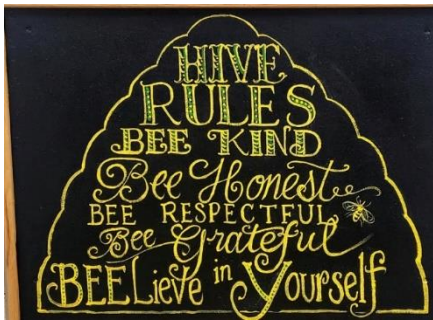 HIVE
RULES
BEE KIND
Bee Honest
BEE RESPECTFUL
Bee Grateful
BEELieve in Yourself